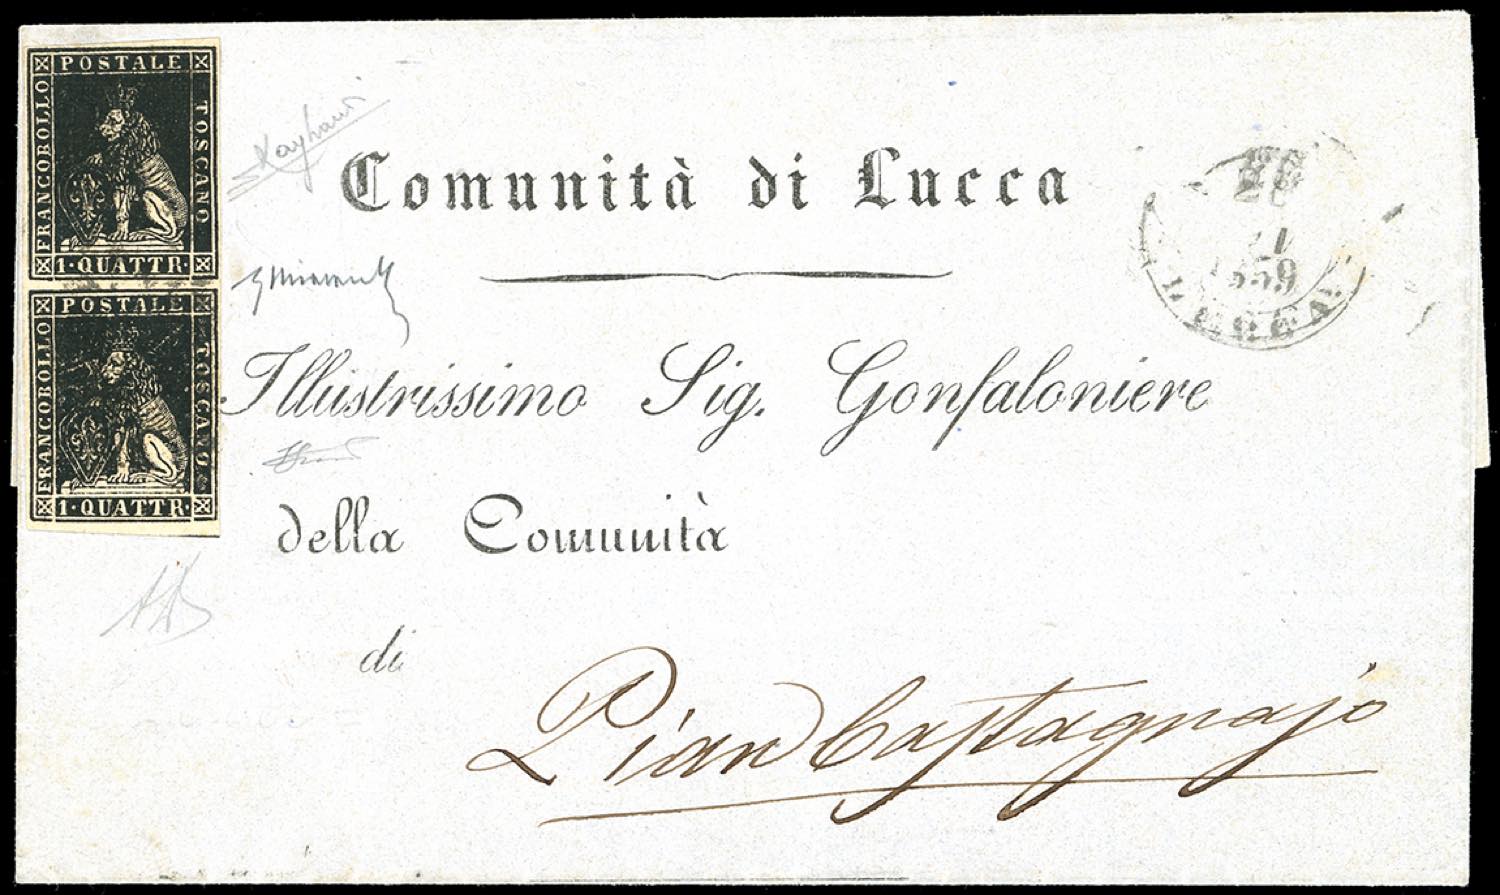 POSTALE
FRANCOBOLLO
TOSCANO
1·QUATTR·
POSTALE
FRANCOBOLLO
TOSCANO
1·QUATTR·
Comunità di Lucca
1859
LUCCA
Illustrissimo Sig. Gonfaloniere
della Comunità
di
Pian Castagnajo